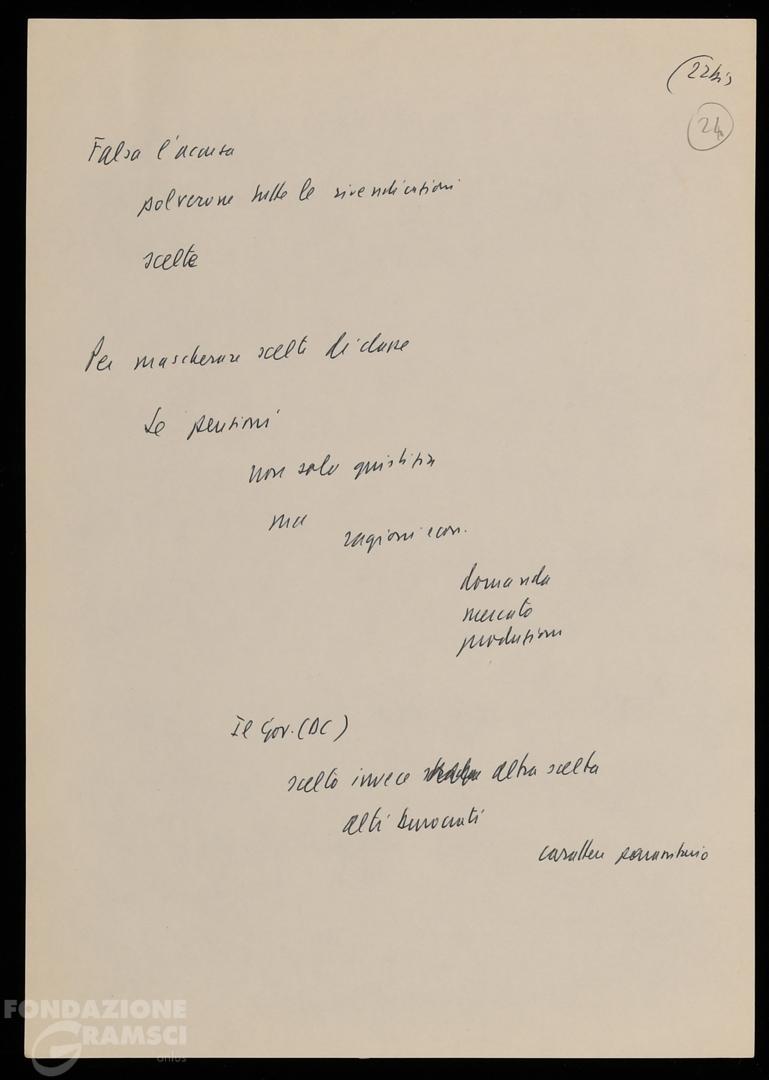 (22bis
24
Falsa l'accusa
polverone tutte le rivendicazioni
scelte
Per mascherare scelte di classe
Le pensioni
non solo giustizia
ma
ragioni econ.
domanda
mercato
produzioni
Il Gov. (DC)
scelto invece altra scelta
alti burocrati
carattere
FONDAZIONE
GRAMSCI
onlus